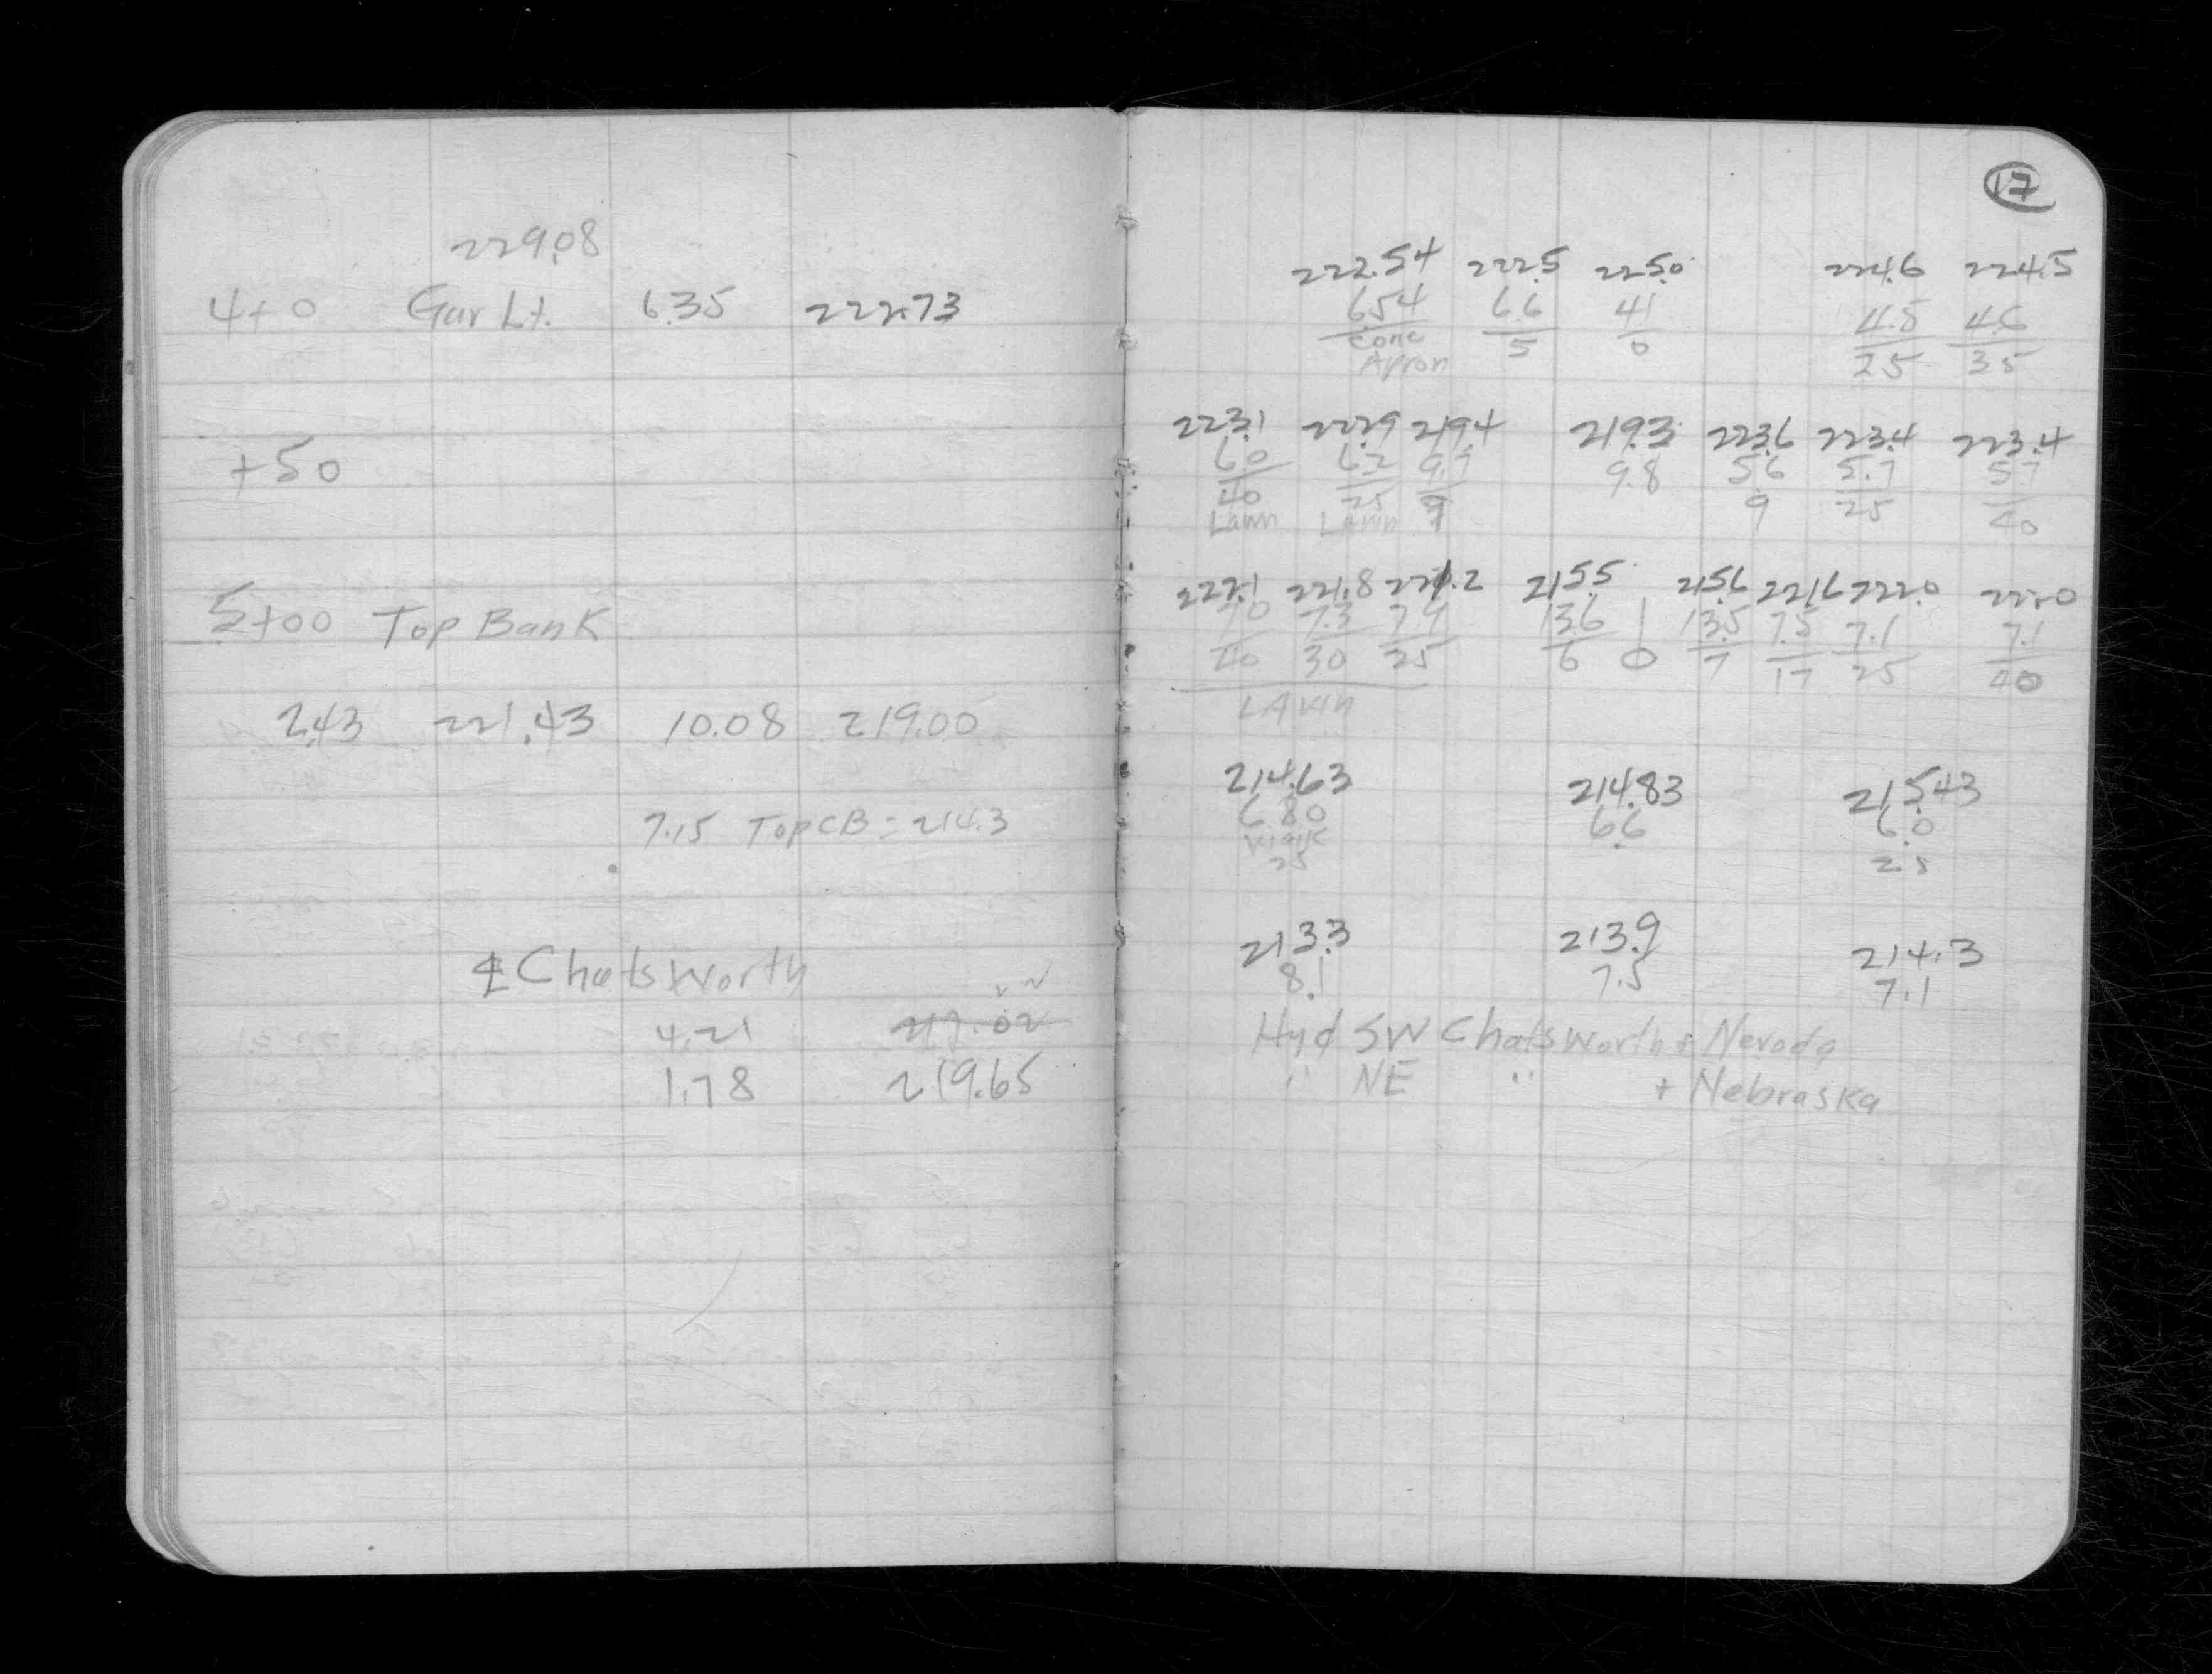 229.08
4+0 Gar Lt. 6.35 222.73
+50
5+00 Top Bank
2.43 221.43 10.08 219.00
7.15 Top CB = 214.3
℄ Chatsworth
4.21 217.02
1.78 219.65
17
222.54 222.5 225.0 224.6 224.5
6.54 6.6 4.1 4.5 4.6
Conc 5 0 25 35
Apron
223.1 222.9 219.4 219.3 223.6 223.4 223.4
6.0 6.2 9.7 9.8 5.6 5.7 5.7
40 25 9 9 25 40
Lawn Lawn
222.1 221.8 221.2 215.5 215.6 221.6 222.0 222.0
7.0 7.3 7.9 13.6 13.5 7.5 7.1 7.1
40 30 25 6 0 7 17 25 40
LAWN
214.63 214.83 215.43
6.80 6.6 6.0
Walk
25 25
213.3 213.9 214.3
8.1 7.5 7.1
Hyd SW Chatsworth + Nevada
" NE " + Nebraska